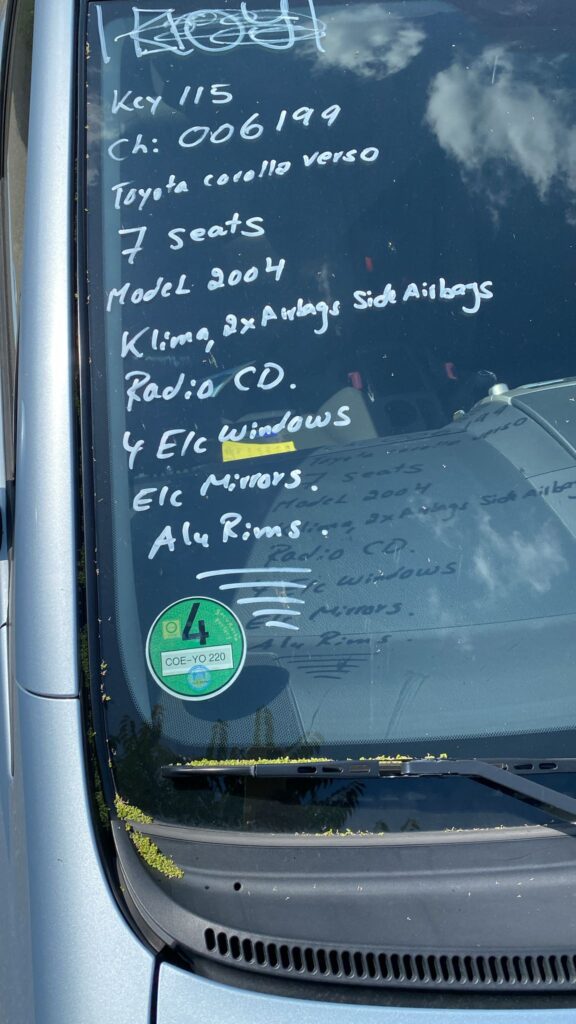 Key 115
Ch: 006199
Toyota corolla verso
7 seats
Model 2004
Klima, 2x Airbags Side Airbags
Radio CD.
4 Elc windows
Elc Mirrors.
Alu Rims.
4
COE-YO 220